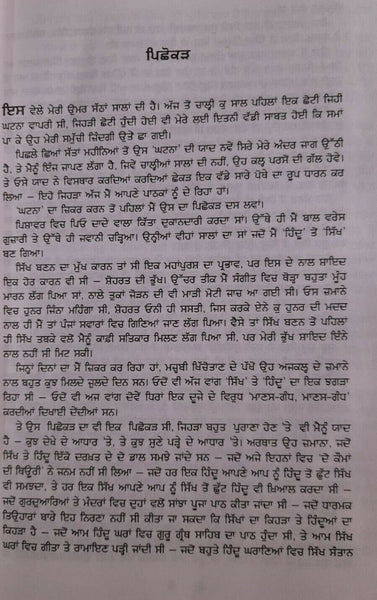 ਪਿਛੋਕੜ
ਇਸ ਵੇਲੇ ਮੇਰੀ ਉਮਰ ਸੱਠਾਂ ਸਾਲਾਂ ਦੀ ਹੈ। ਅੱਜ ਤੋਂ ਚਾਲ੍ਹੀ ਕੁ ਸਾਲ ਪਹਿਲਾਂ ਇਕ ਛੋਟੀ ਜਿਹੀ
ਘਟਨਾ ਵਾਪਰੀ ਸੀ, ਜਿਹੜੀ ਛੋਟੀ ਹੁੰਦੀ ਹੋਈ ਵੀ ਮੇਰੇ ਲਈ ਇਤਨੀ ਵੱਡੀ ਸਾਬਤ ਹੋਈ ਕਿ ਸਮਾਂ
ਪਾ ਕੇ ਉਹ ਮੇਰੀ ਸਮੁੱਚੀ ਜ਼ਿੰਦਗੀ ਉਤੇ ਛਾ ਗਈ।
ਪਿਛਲੇ ਛਿਆਂ ਸੱਤਾਂ ਮਹੀਨਿਆਂ ਤੋਂ ਉਸ 'ਘਟਨਾ' ਦੀ ਯਾਦ ਨਵੇਂ ਸਿਰੇ ਮੇਰੇ ਅੰਦਰ ਜਾਗ ਉੱਠੀ
ਹੈ, ਤੇ ਮੈਨੂੰ ਇੰਜ ਜਾਪਣ ਲੱਗਾ ਹੈ, ਜਿਵੇਂ ਚਾਲ੍ਹੀਆਂ ਸਾਲਾਂ ਦੀ ਨਹੀਂ, ਉਹ ਕਲ੍ਹ ਪਰਸੋਂ ਦੀ ਗੱਲ ਹੋਵੇ।
ਤੇ ਓਸੇ ਯਾਦ ਨੇ ਵਿਸਥਾਰ ਕਰਦਿਆਂ ਕਰਦਿਆਂ ਛੇਕੜ ਇਕ ਵੱਡੇ ਸਾਰੇ ਪੋਥੇ ਦਾ ਰੂਪ ਧਾਰਨ ਕਰ
ਲਿਆ – ਇਹੋ ਜਿਹੜਾ ਅੱਜ ਮੈਂ ਆਪਣੇ ਪਾਠਕਾਂ ਨੂੰ ਦੇ ਰਿਹਾ ਹਾਂ।
'ਘਟਨਾ' ਦਾ ਜ਼ਿਕਰ ਕਰਨ ਤੋਂ ਪਹਿਲਾਂ ਮੈਂ ਉਸ ਦਾ ਪਿਛੋਕੜ ਦਸ ਲਵਾਂ।
ਪਿਸ਼ਾਵਰ ਵਿਚ ਪਿਓ ਦਾਦੇ ਵਾਲਾ ਕਿੱਤਾ ਦੁਕਾਨਦਾਰੀ ਕਰਦਾ ਸਾਂ। ਉੱਥੇ ਹੀ ਮੈਂ ਬਾਲ ਵਰੇਸ
ਗੁਜ਼ਾਰੀ ਤੇ ਉੱਥੇ ਹੀ ਜਵਾਨੀ ਚੜ੍ਹਿਆ। ਉਨ੍ਹੀਆਂ ਵੀਹਾਂ ਸਾਲਾਂ ਦਾ ਸਾਂ ਜਦੋਂ ਮੈਂ 'ਹਿੰਦੂ' ਤੋਂ 'ਸਿੱਖ'
ਬਣ ਗਿਆ।
ਸਿੱਖ ਬਣਨ ਦਾ ਮੁੱਖ ਕਾਰਨ ਤਾਂ ਸੀ ਇਕ ਮਹਾਂਪੁਰਸ਼ ਦਾ ਪ੍ਰਭਾਵ, ਪਰ ਇਸ ਦੇ ਨਾਲ ਸ਼ਾਇਦ
ਇਕ ਹੋਰ ਕਾਰਨ ਵੀ ਸੀ – ਸ਼ੋਹਰਤ ਦੀ ਭੁੱਖ। ਉੱਚਰ ਤੀਕ ਮੈਂ ਸੰਗੀਤ ਵਿਚ ਥੋੜ੍ਹਾ ਬਹੁਤਾ ਮੂੰਹ
ਮਾਰਨ ਲੱਗ ਪਿਆ ਸਾਂ, ਨਾਲੇ ਤੁਕਾਂ ਜੋੜਨ ਦੀ ਵੀ ਮਾੜੀ ਮੋਟੀ ਜਾਚ ਆ ਗਈ ਸੀ। ਓਸ ਜ਼ਮਾਨੇ
ਵਿਚ ਹੁਨਰ ਜਿੰਨਾ ਮਹਿੰਗਾ ਸੀ, ਸ਼ੋਹਰਤ ਓਨੀ ਹੀ ਸਸਤੀ, ਜਿਸ ਕਰਕੇ ਏਨੇ ਕੁ ਹੁਨਰ ਦੀ ਮਦਦ
ਨਾਲ ਹੀ ਮੈਂ ਤਾਂ ਪੰਜਾਂ ਸਵਾਰਾਂ ਵਿਚ ਗਿਣਿਆਂ ਜਾਣ ਲੱਗ ਪਿਆ। ਵੈਸੇ ਤਾਂ ਸਿੱਖ ਬਣਨ ਤੋਂ ਪਹਿਲਾਂ
ਹੀ ਸਿੱਖ ਤਬਕੇ ਵਲੋਂ ਮੈਨੂੰ ਕਾਫ਼ੀ ਸਤਿਕਾਰ ਮਿਲਣ ਲੱਗ ਪਿਆ ਸੀ, ਪਰ ਮੇਰੀ ਭੁੱਖ ਸ਼ਾਇਦ ਇੰਨੇ
ਨਾਲ ਨਹੀਂ ਸੀ ਮਿਟ ਸਕੀ।
ਜਿਨ੍ਹਾਂ ਦਿਨਾਂ ਦਾ ਮੈਂ ਜ਼ਿਕਰ ਕਰ ਰਿਹਾ ਹਾਂ, ਮਜ਼੍ਹਬੀ ਖਿੱਚੋਤਾਣ ਦੇ ਪੱਖੋਂ ਉਹ ਅਜਕਲ੍ਹ ਦੇ ਜ਼ਮਾਨੇ
ਨਾਲ ਬਹੁਤ ਕੁਝ ਮਿਲਦੇ ਜੁਲਦੇ ਦਿਨ ਸਨ। ਓਦੋਂ ਵੀ ਅੱਜ ਵਾਂਗ 'ਸਿੱਖ' ਤੇ 'ਹਿੰਦੂ' ਦਾ ਇਕ ਝਗੜਾ
ਰਿਹਾ ਸੀ – ਓਦੋਂ ਵੀ ਅਜ ਵਾਂਗ ਦੋਵੇਂ ਧਿਰਾਂ ਇਕ ਦੂਜੇ ਦੇ ਵਿਰੁਧ 'ਮਾਣਸ-ਗੰਧ, ਮਾਣਸ-ਗੰਧ'
ਕਰਦੀਆਂ ਦਿਖਾਈ ਦੇਂਦੀਆਂ ਸਨ।
ਤੇ ਉਸ ਪਿਛੋਕੜ ਦਾ ਵੀ ਇਕ ਪਿਛੋਕੜ ਸੀ, ਜਿਹੜਾ ਬਹੁਤ ਪੁਰਾਣਾ ਹੋਣ 'ਤੇ ਵੀ ਮੈਨੂੰ ਯਾਦ
ਹੈ – ਕੁਝ ਦੇਖੇ ਦੇ ਆਧਾਰ 'ਤੇ, ਤੇ ਕੁਝ ਸੁਣੇ ਪੜ੍ਹੇ ਦੇ ਆਧਾਰ 'ਤੇ। ਅਰਥਾਤ ਉਹ ਜ਼ਮਾਨਾ, ਜਦੋਂ
ਸਿੱਖ ਤੇ ਹਿੰਦੂ ਇੱਕੋ ਦਰਖ਼ਤ ਦੇ ਦੋ ਡਾਲ ਸਮਝੇ ਜਾਂਦੇ ਸਨ – ਜਦੋਂ ਅਜੇ ਇਹਨਾਂ ਵਿਚ 'ਦੋ ਕੌਮਾਂ
ਦੀ ਥਿਊਰੀ' ਨੇ ਜਨਮ ਨਹੀਂ ਸੀ ਲਿਆ – ਜਦੋਂ ਹਰ ਇਕ ਹਿੰਦੂ ਆਪਣੇ ਆਪ ਨੂੰ ਹਿੰਦੂ ਤੋਂ ਛੁੱਟ ਸਿੱਖ
ਵੀ ਸਮਝਦਾ, ਤੇ ਹਰ ਇਕ ਸਿੱਖ ਆਪਣੇ ਆਪ ਨੂੰ ਸਿੱਖ ਤੋਂ ਛੁੱਟ ਹਿੰਦੂ ਵੀ ਖ਼ਿਆਲ ਕਰਦਾ ਸੀ –
ਜਦੋਂ ਗੁਰਦੁਆਰਿਆਂ ਤੇ ਮੰਦਰਾਂ ਵਿਚ ਦੁਹਾਂ ਵਲੋਂ ਸਾਂਝਾ ਪੂਜਾ ਪਾਠ ਕੀਤਾ ਜਾਂਦਾ ਸੀ – ਜਦੋਂ ਧਾਰਮਕ
ਤਿਉਹਾਰਾਂ ਬਾਰੇ ਇਹ ਨਿਰਣਾ ਨਹੀਂ ਸੀ ਕੀਤਾ ਜਾ ਸਕਦਾ ਕਿ ਸਿੱਖਾਂ ਦਾ ਕਿਹੜਾ ਤੇ ਹਿੰਦੂਆਂ ਦਾ
ਕਿਹੜਾ ਹੈ – ਜਦੋਂ ਆਮ ਹਿੰਦੂ ਘਰਾਂ ਵਿਚ ਗੁਰੂ ਗ੍ਰੰਥ ਸਾਹਿਬ ਦਾ ਪਾਠ ਹੁੰਦਾ ਸੀ, ਤੇ ਆਮ ਸਿੱਖ
ਘਰਾਂ ਵਿਚ ਗੀਤਾ ਤੇ ਰਾਮਾਇਣ ਪੜ੍ਹੀ ਜਾਂਦੀ ਸੀ – ਜਦੋਂ ਬਹੁਤੇ ਹਿੰਦੂ ਘਰਾਣਿਆਂ ਵਿਚ ਸਿੱਖ ਸੰਤਾਨ